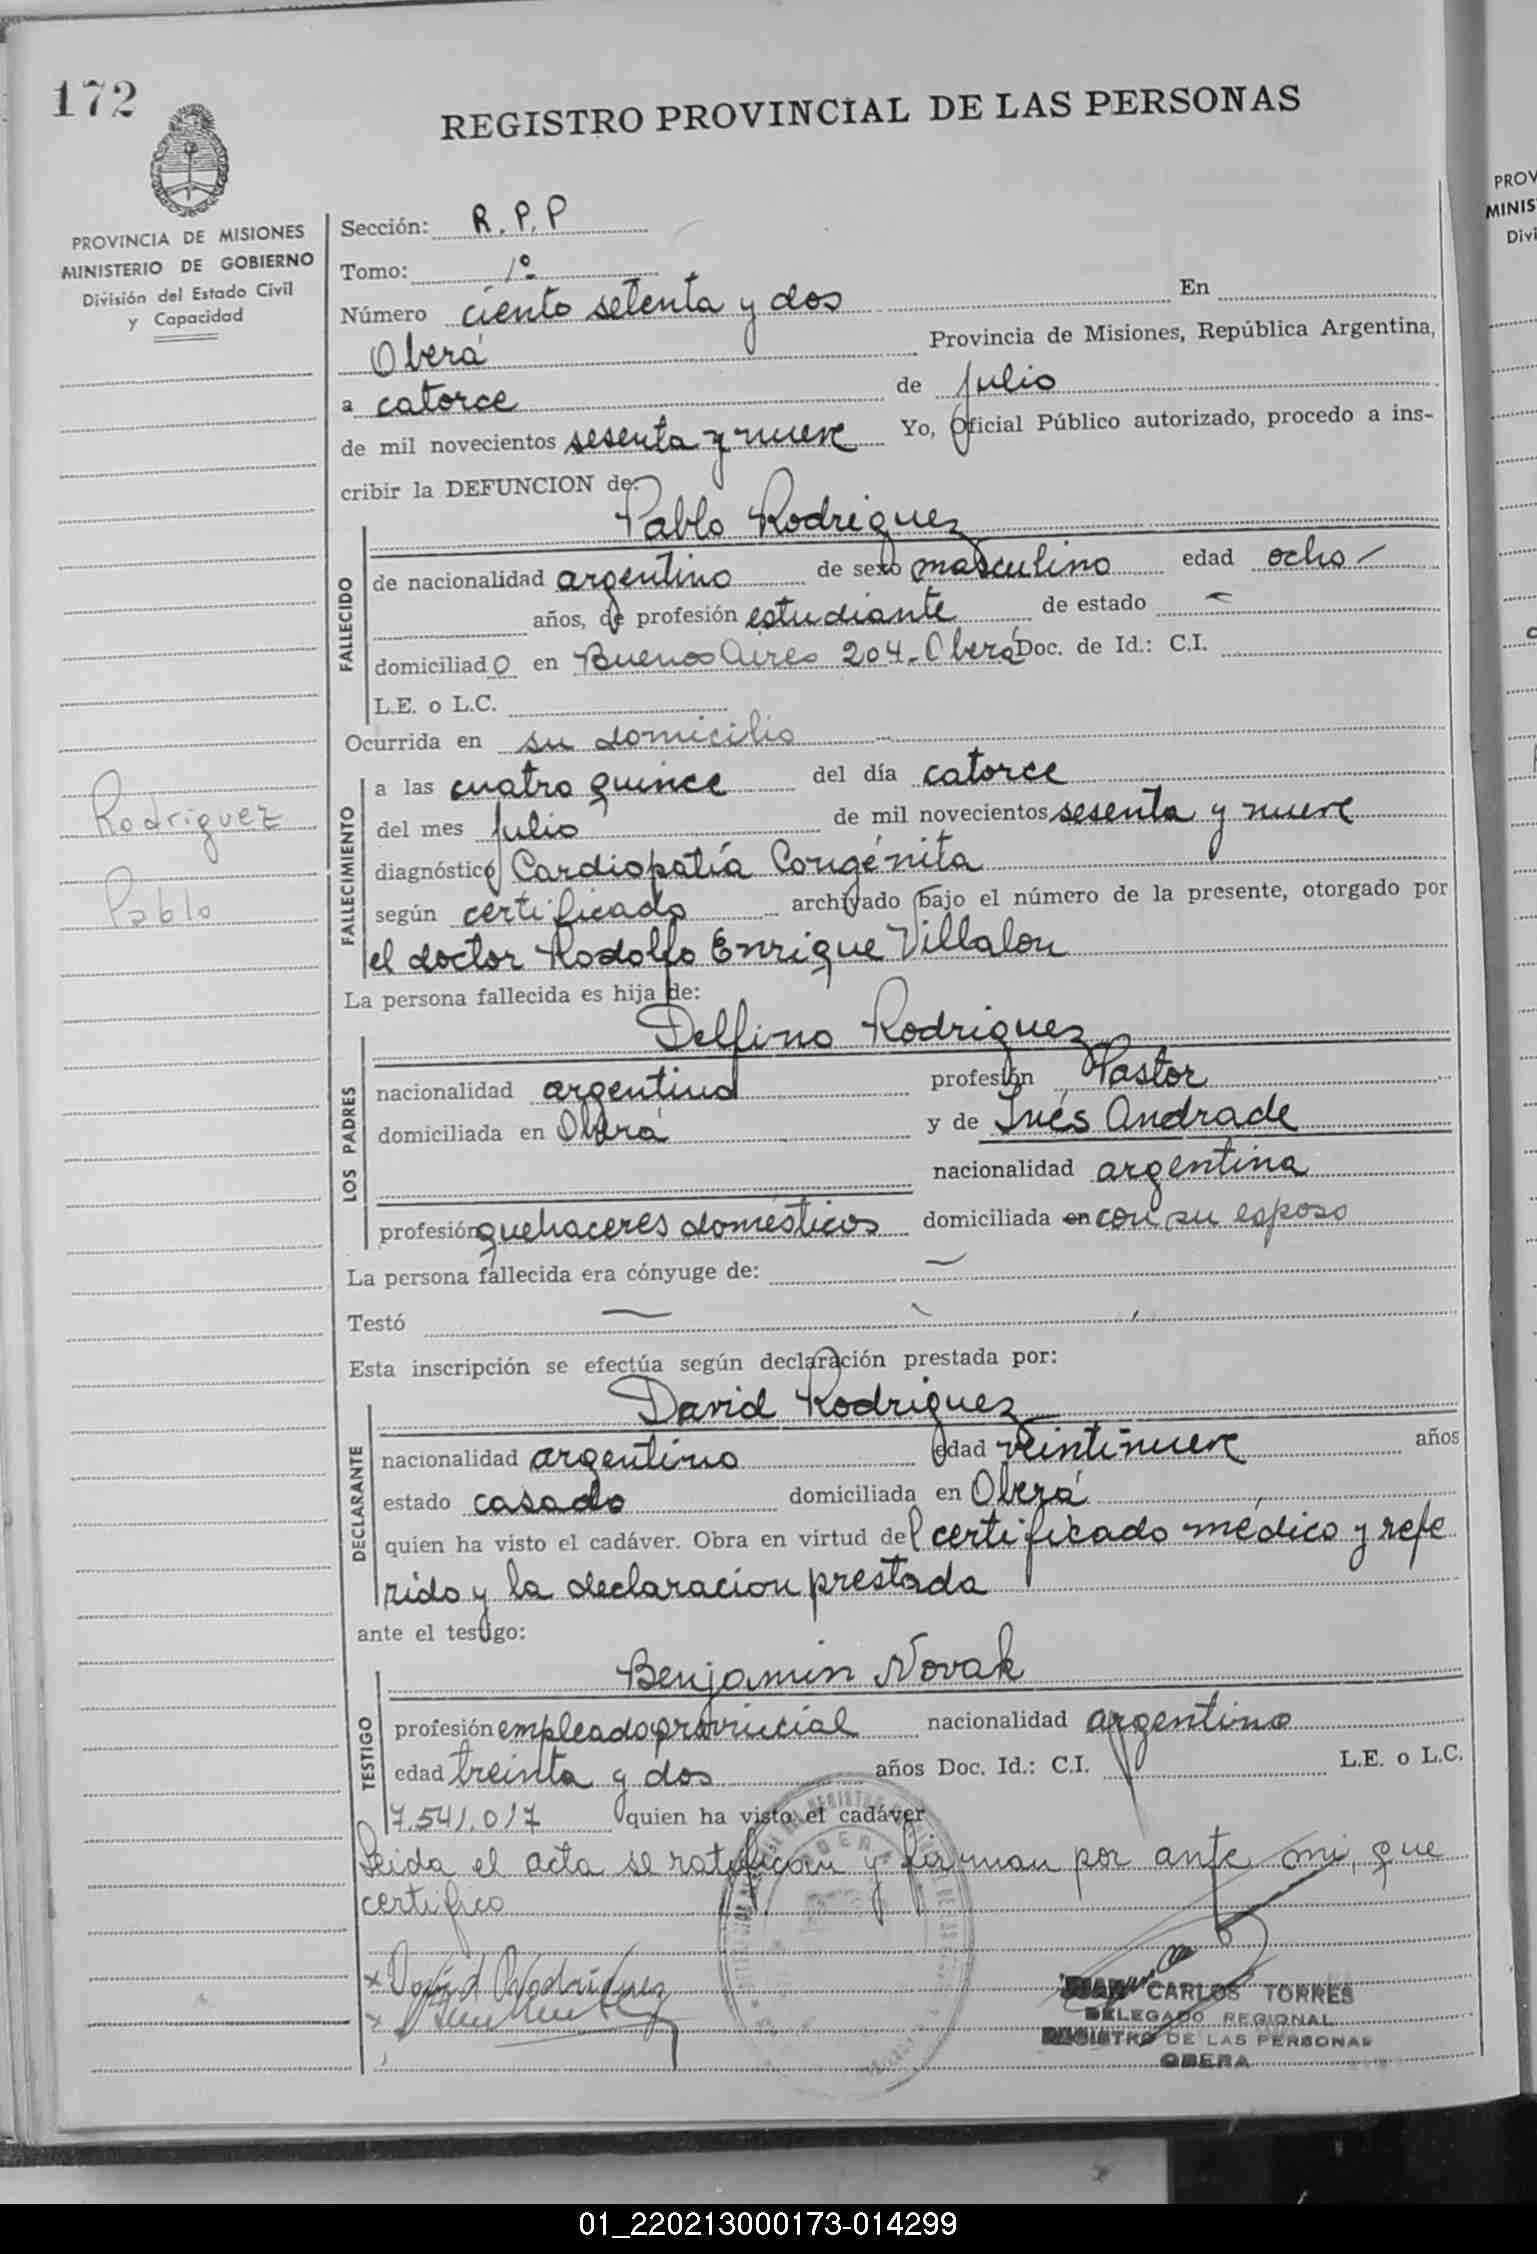 172
REGISTRO PROVINCIAL DE LAS PERSONAS
PROVINCIA DE MISIONES
MINISTERIO DE GOBIERNO
División del Estado Civil
y Capacidad
Sección: R.P.P
Tomo: 1º
Número ciento setenta y dos En
Oberá Provincia de Misiones, República Argentina,
a catorce de julio
de mil novecientos sesenta y nueve Yo, Oficial Público autorizado, procedo a ins-
cribir la DEFUNCION de:
Pablo Rodriguez
FALLECIDO
de nacionalidad argentino de sexo masculino edad ocho
años, de profesión estudiante de estado -
domiciliado en Buenos Aires 204-Oberá Doc. de Id.: C.I.
L.E. o L.C.
Ocurrida en su domicilio
Rodriguez
Pablo
FALLECIMIENTO
a las cuatro quince del día catorce
del mes julio de mil novecientos sesenta y nueve
diagnóstico Cardiopatía Congénita
según certificado archivado bajo el número de la presente, otorgado por
el doctor Rodolfo Enrique Villalon
La persona fallecida es hija de:
Delfino Rodriguez
LOS PADRES
nacionalidad argentino profesión Pastor
domiciliada en Oberá y de Inés Andrade
nacionalidad argentina
profesión quehaceres domésticos domiciliada en con su esposo
La persona fallecida era cónyuge de: -
Testó -
Esta inscripción se efectúa según declaración prestada por:
David Rodriguez
DECLARANTE
nacionalidad argentino edad veintinueve años
estado casado domiciliada en Oberá
quien ha visto el cadáver. Obra en virtud del certificado médico y refe
rido y la declaracion prestada
ante el testigo:
Benjamin Novak
TESTIGO
profesión empleado provincial nacionalidad argentino
edad treinta y dos años Doc. Id.: C.I. L.E. o L.C.
7.541.017 quien ha visto el cadáver
Leida el acta se ratifican y firman por ante mi, que
certifico
x David Rodriguez
x
JUAN CARLOS TORRES
DELEGADO REGIONAL
REGISTRO DE LAS PERSONAS
OBERA
PROV
MINIS
Divi
01_220213000173-014299